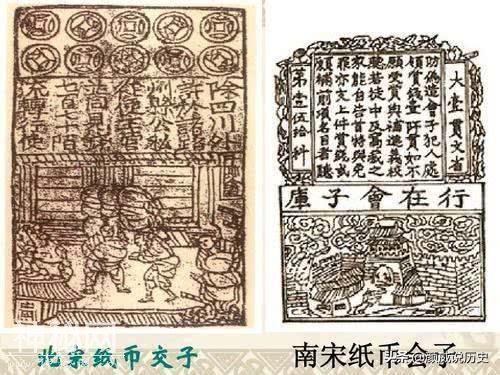 除四川外
許於諸路
州縣公私
從便主管
並同見錢
七百七十陌
流轉行使
大壹貫文省
偽造會子犯人處
斬賞錢壹仟貫如不
願受賞與補進義校
尉若徒中及窩藏之
家能自告首特與免
罪亦支上件賞錢或
願補前項名目者聽
第壹伍拾料
行在會子庫
北宋纸币交子
南宋纸币会子
头条@颜威说历史